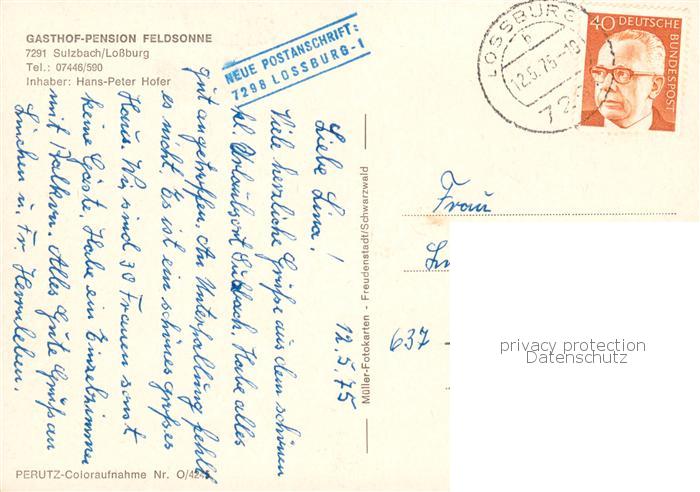 GASTHOF-PENSION FELDSONNE
7291 Sulzbach/Loßburg
Tel.: 07446/590
Inhaber: Hans-Peter Hofer
NEUE POSTANSCHRIFT:
7298 LOSSBURG-1
12.5.75
Liebe Lina!
Viele herzliche Grüße aus dem schönen
kl. Urlaubsort Sulzbach. Habe alles
gut angetroffen. An Unterhaltung fehlt
es nicht. Es ist ein schönes großes
Haus. Wir sind 30 Frauen sonst
keine Gäste. Habe ein Einzelzimmer
mit Balkon. Alles Gute Grüß an
Linchen u. Fr.
PERUTZ-Coloraufnahme Nr. O/424
Müller-Fotokarten - Freudenstadt/Schwarzwald
LOSSBURG
b
12.5.75-18
40 DEUTSCHE
BUNDESPOST
Frau
637
privacy protection
Datenschutz